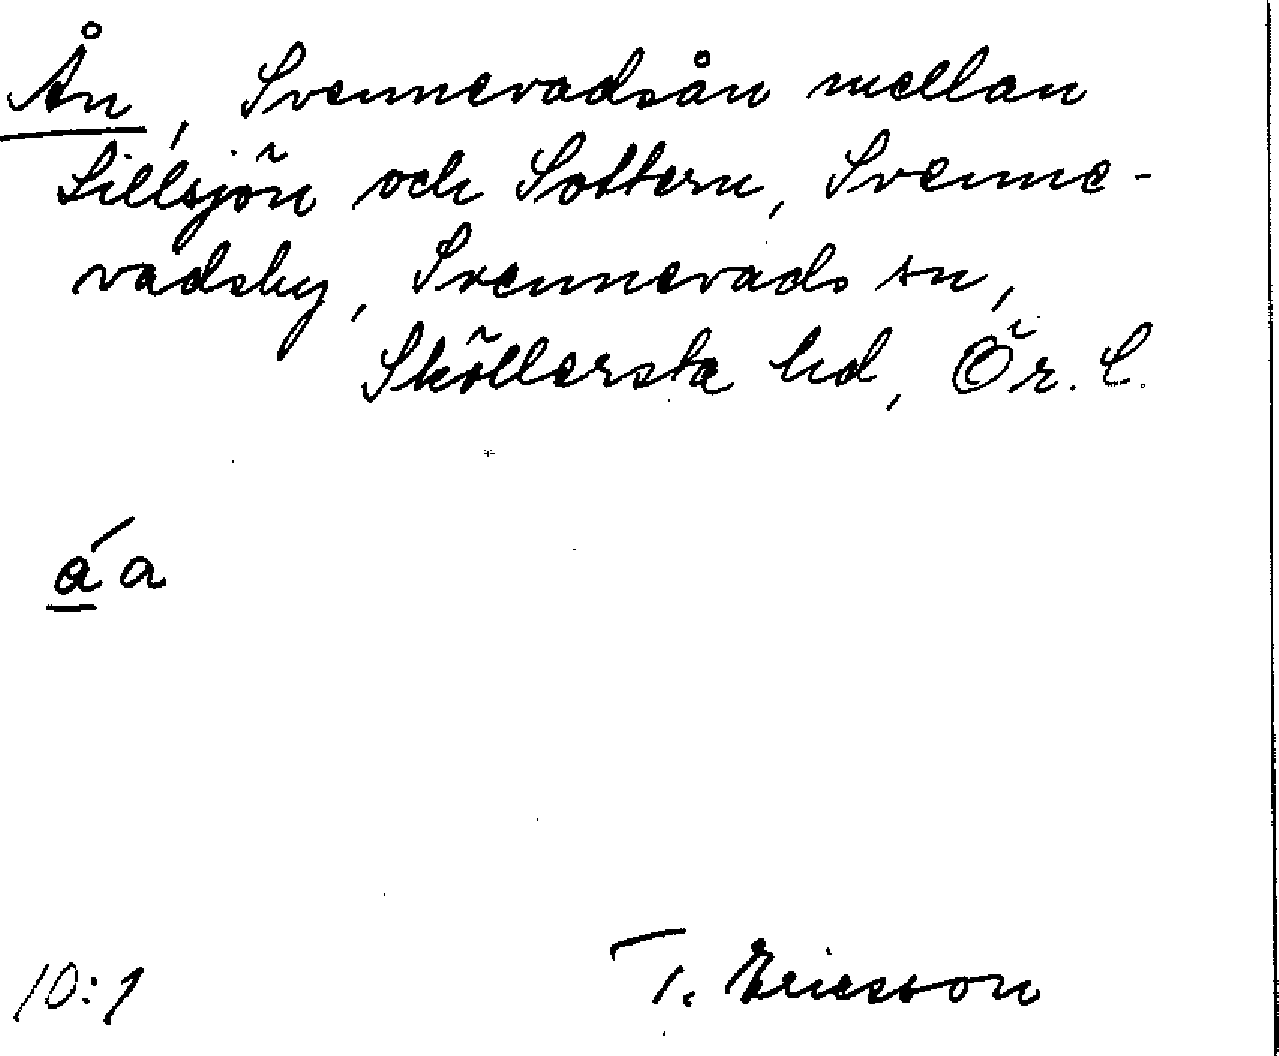 Ån, Svennevadsån mellan
Sillsjön och Sottern, Svenne-
vadsby, Svennevads sn,
Sköllersta hd, Ör. L.
áa
10:1
T. Ericsson